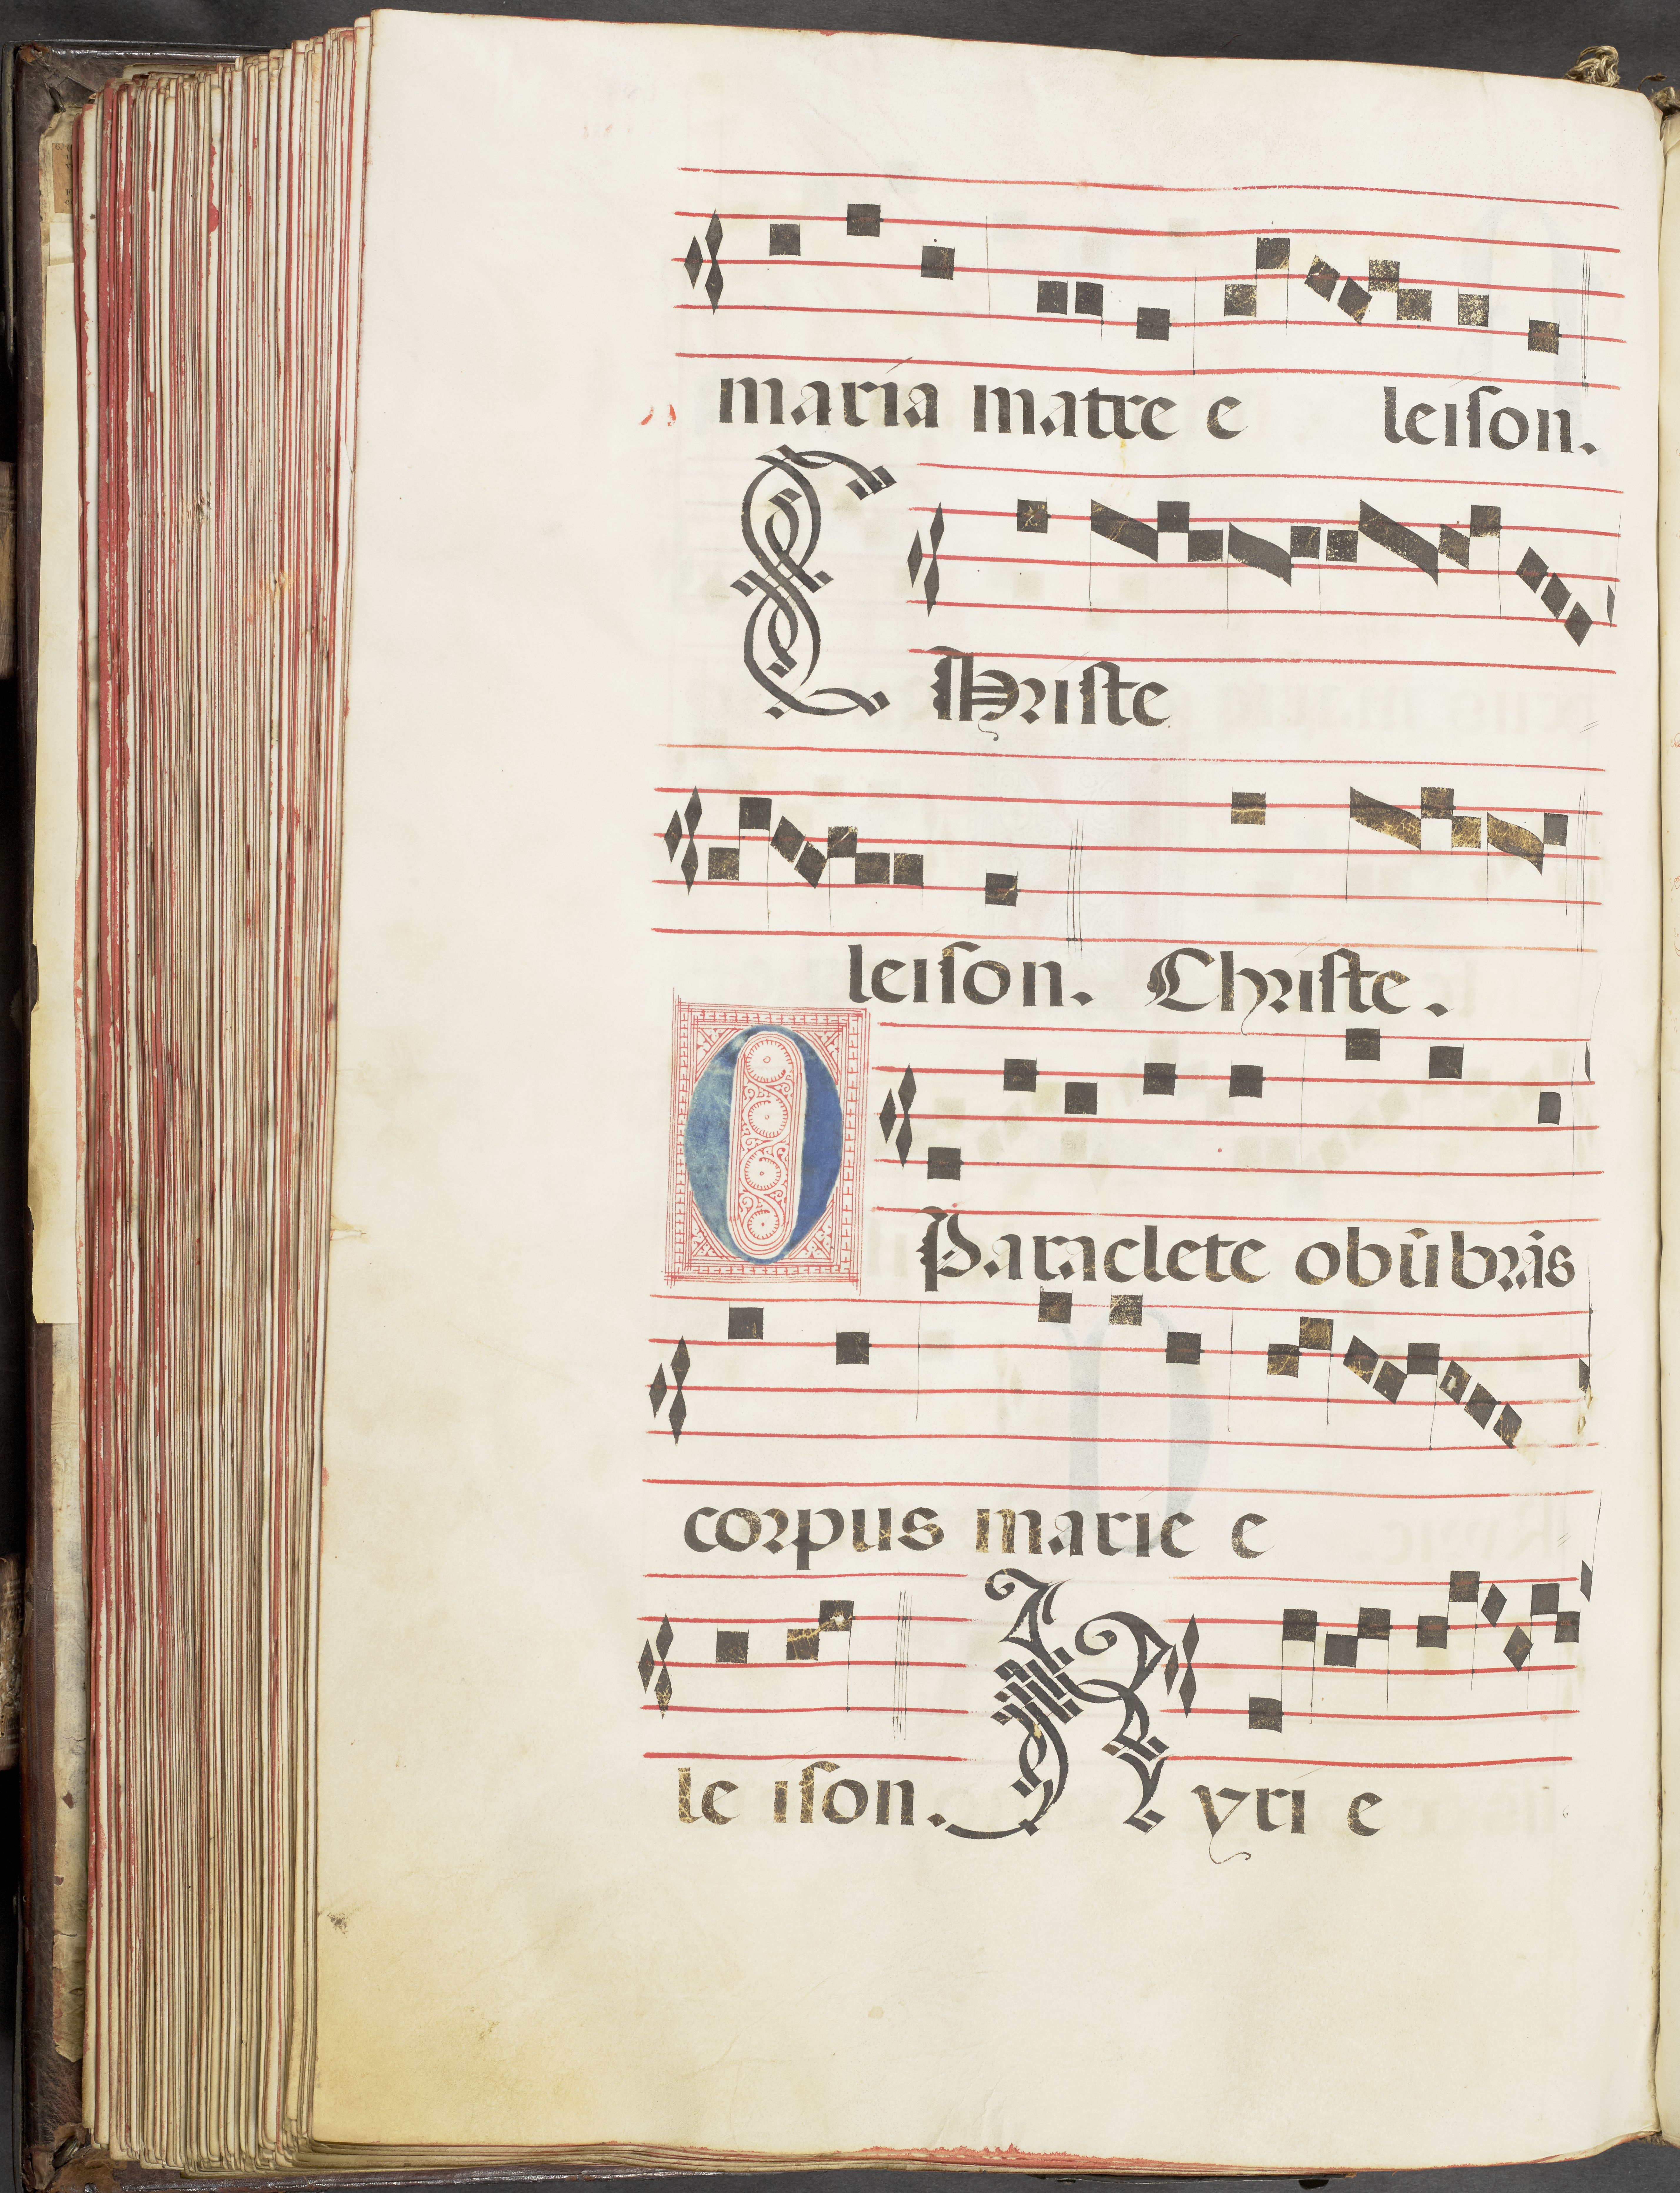 maria matre e leiſon.
Chriſte
leiſon. Chriſte.
O Paraclete obūbrās
corpus marie e
le iſon. Kyri e